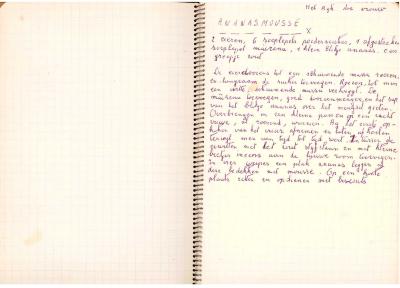 Het Rijk der vrouw
ANANASMOUSSE
2 eieren, 6 soeplepels poedersuiker, 1 afgestreken
soeplepel maïzena, 1 klein blikje ananas.
zout
De eierdooiers tot een schuimende massa roeren,
en langzaam de suiker toevoegen. Roeren tot men
een witte, schuimende massa verkrijgt. De
maïzena toevoegen, goed en het sap
van het blikje ananas over het mengsel gieten.
Overbrengen in een kleine pan en op een zacht
vuur, al roerend, warmen. Bij het eerste op-
koken van het vuur afnemen en laten afkoelen
terwijl men van tijd tot tijd roert. Intussen de
eiwitten met het zout stijf slaan en met kleine
beetjes ineens aan de lauwe room toevoegen.
In vier coupes een plak ananas leggen en
deze bedekken met mousse. Op een koele
plaats zetten en opdienen met biscuits